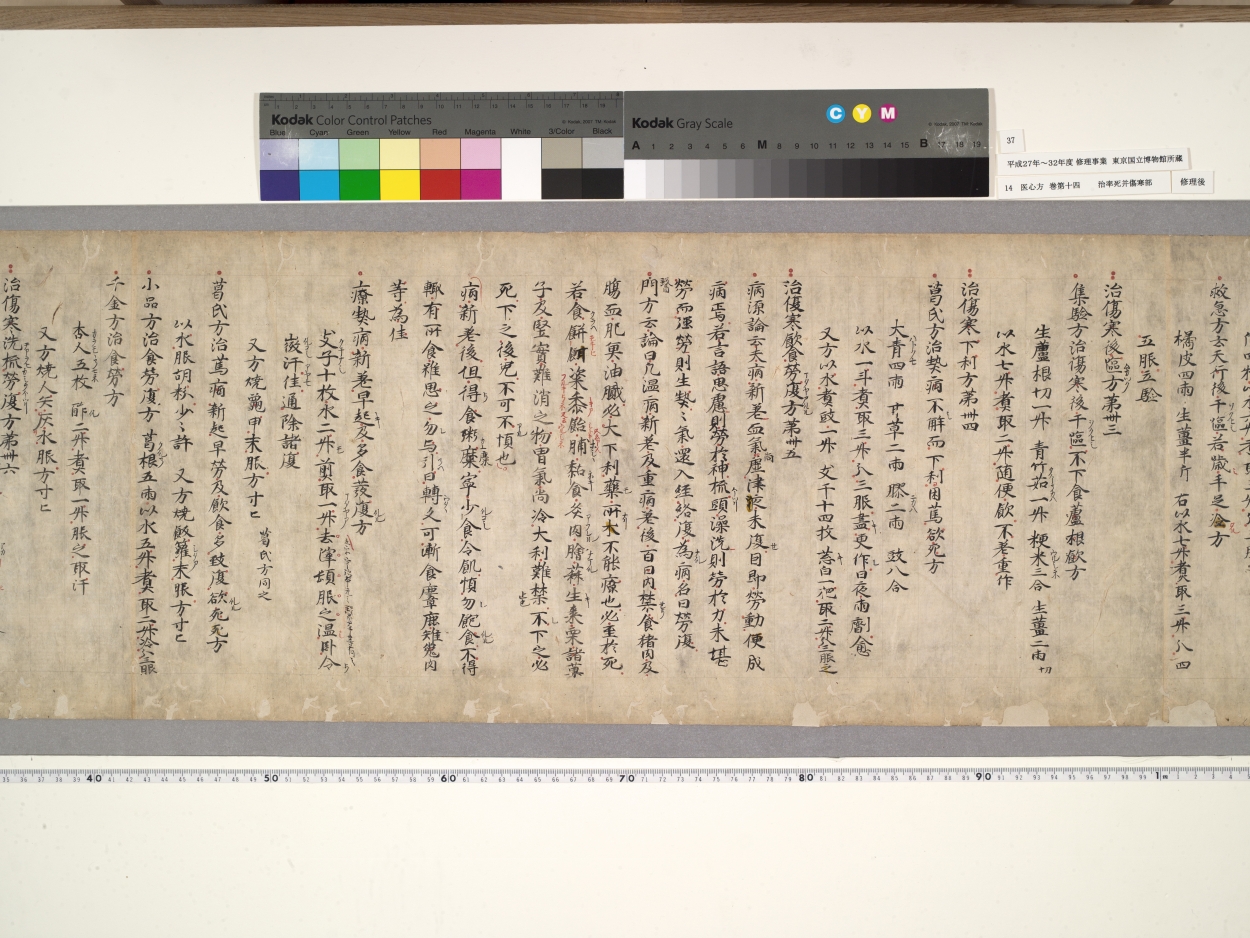 Kodak Color Control Patches
Blue Cyan Green Yellow Red Magenta White 3/Color Black
Kodak Gray Scale
C Y M
A 1 2 3 4 5 6 M 8 9 10 11 12 13 14 15 B 17 18 19
37
平成27年～32年度 修理事業 東京国立博物館所蔵
14 医心方 巻第十四 治卒死并傷寒部
修理後
救急方云天行後干嘔若歳手足冷方
橘皮四両 生薑半斤 右以水七升煮取三升八四
五服立驗
治傷寒後嘔方第卅三
集驗方治傷寒後干嘔不下食蘆根飲方
生蘆根切一升 青竹茹一升 粳米三合 生薑二両切
以水七升煮取二升随便飲不差重作
治傷寒下利方第卅四
葛氏方治熱病不解而下利困篤欲死方
大青四両 甘草二両 膠二両 豉八合
以水一斗煮取三升分三服盡更作日夜両劑愈
又方以水煮豉一升 支子十四枚 葱白一把取二升分三服之
治傷寒飲食勞復方第卅五
病源論云夫病新差血氣虚津液未復因即勞動便成
病焉若言語思慮則勞於神梳頭澡洗則勞於力未堪
勞而強勞則生熱々氣還入経絡復為病名曰勞復
門方云論曰凡温病新差及重病差後百日内禁食猪肉及
腸血肥魚油膩必大下利藥所不能療也必至於死
若食餅粢黍飴脯黏食炙肉膾蒜生棗栗諸菓
子及堅實難消之物胃氣尚冷大利難禁不下之必
死下之復危不可不慎也
病新差後但得食粥糜寧少食令飢慎勿飽食不得
輙有所食雖思之勿与引日轉久可漸食麞鹿雉兎肉
等為佳
療熱病新差早起及多食發復方
支子十枚水二升煎取一升去滓頓服之温臥令
微汗佳通除諸復
又方焼龜甲末服方寸匕 葛氏方同之
葛氏方治篤病新起早勞及飲食多致復欲死方
以水服胡粉少々許 又方焼飯籮末服方寸匕
小品方治食勞復方 葛根五両以水五升煮取二升冷分三服
千金方治食勞方
杏人五枚 酢二升煮取一升服之取汗
又方焼人矢灰水服方寸匕
治傷寒洗梳勞復方第卅六